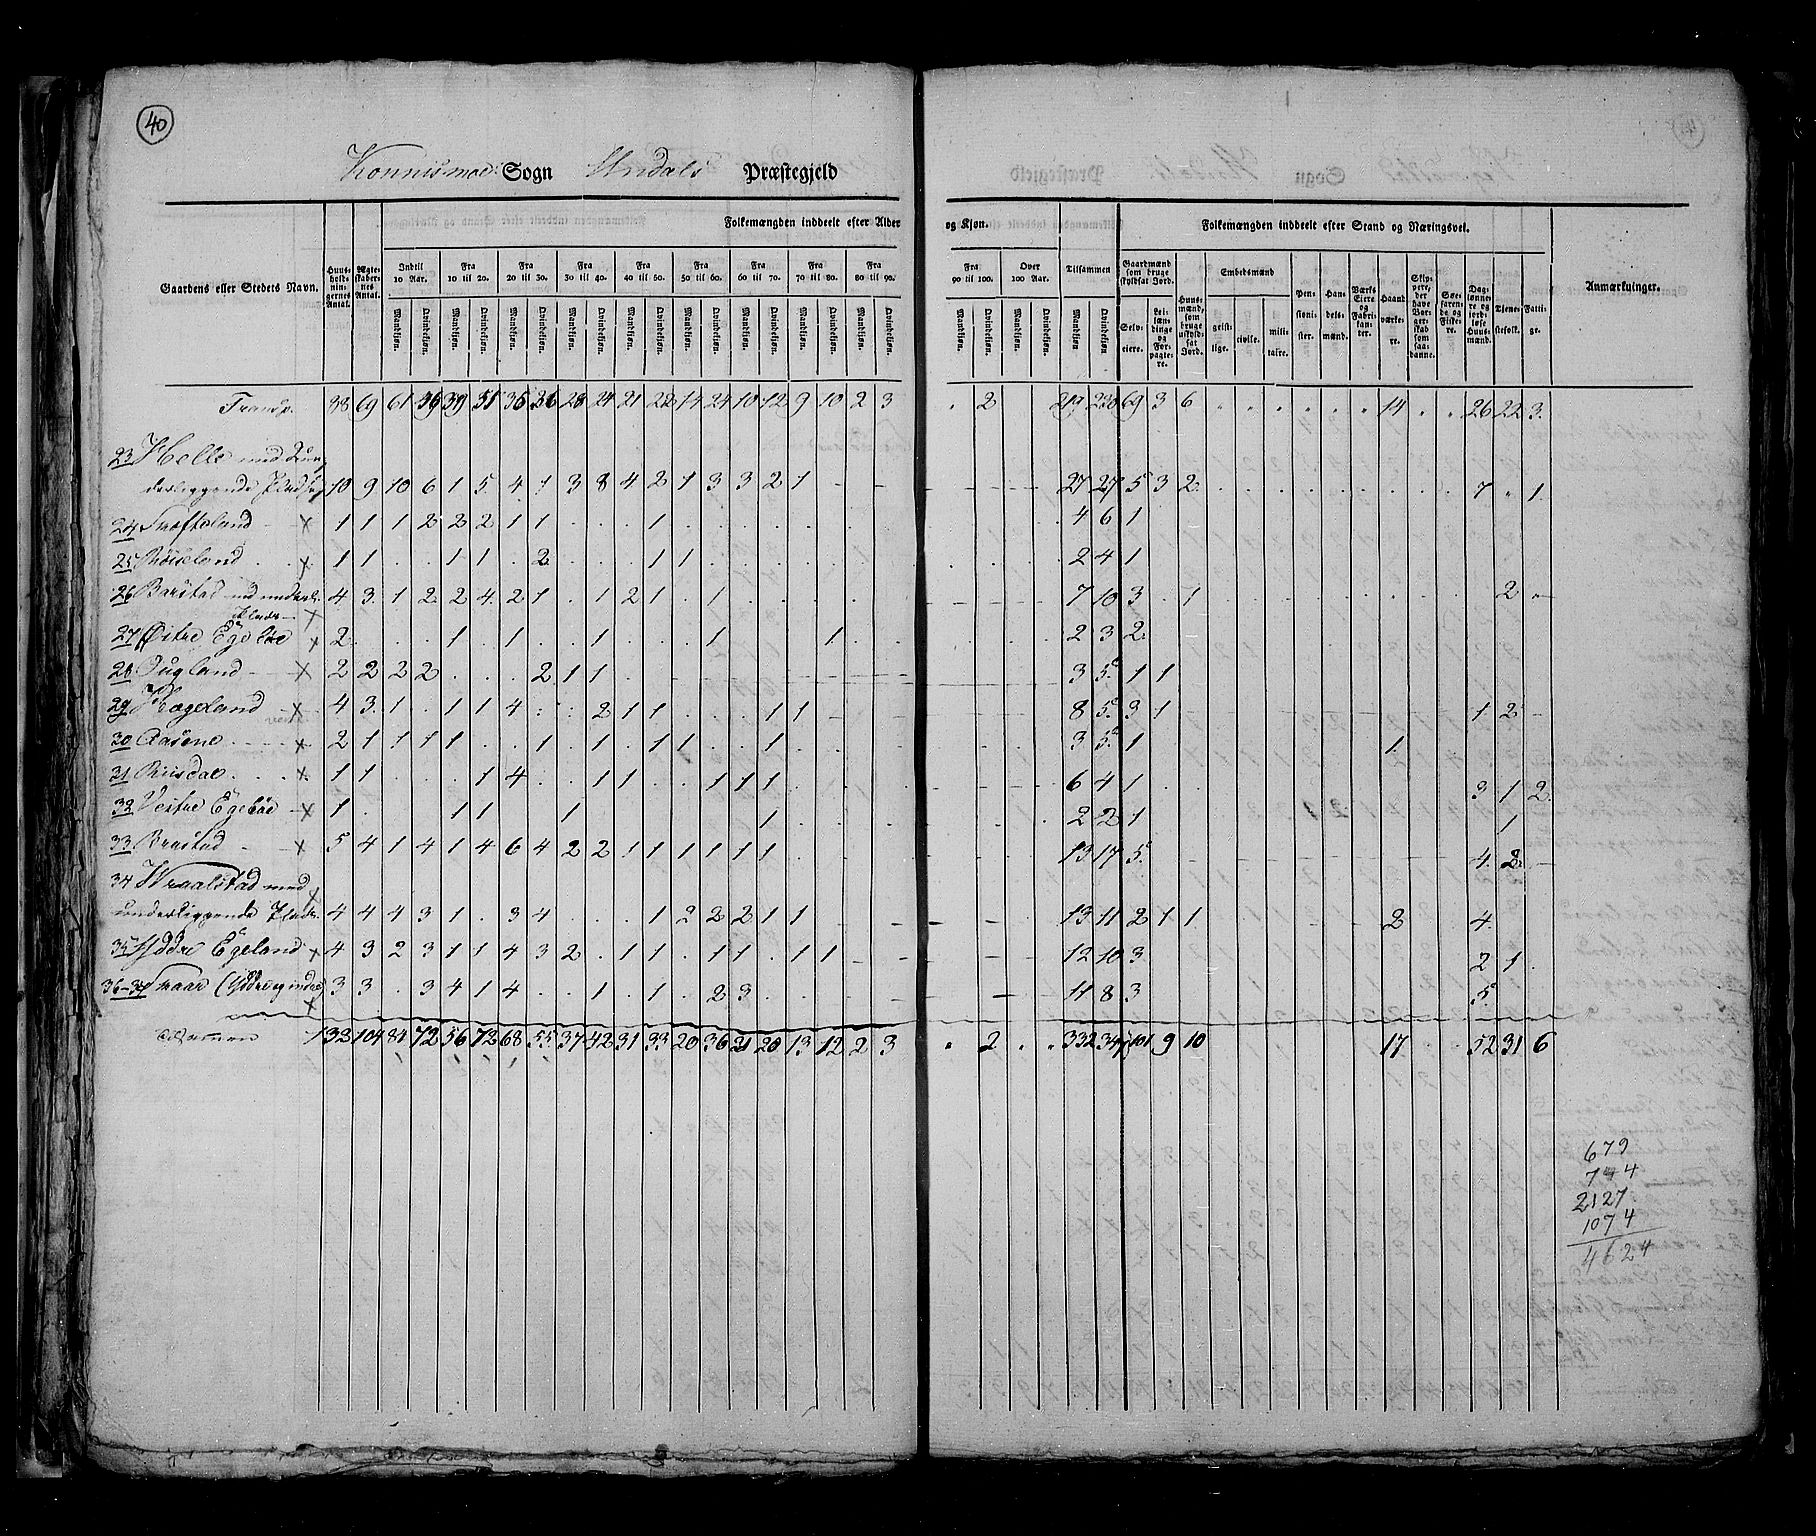 40
Konnismoe Sogn Undals Præstegjeld
Folkemængden inddeelt efter Alder og Kjøn.
Folkemængden inddeelt efter Stand og Næringsvei.
Gaardens eller Stedets Navn.
Huusholdningernes Antal.
Ægteskabernes Antal.
Indtil 10 Aar. Fra 10 til 20. Fra 20 til 30. Fra 30 til 40. Fra 40 til 50. Fra 50 til 60. Fra 60 til 70. Fra 70 til 80. Fra 80 til 90. Fra 90 til 100. Over 100 Aar. Tilsammen
Mandkjøn. Qvindekjøn.
Gaardmænd som bruge skyldsat Jord.
Selveiere. Leilændinge og Forpagtere.
Huusmænd, som bruge uskyldsat Jord.
Embedsmænd
geistlige. civile. militaire.
Pensionister. Handelsmænd. Værks Eiere og Fabrikanter. Haandværkere.
Skippere, der have Borgerskab som saadanne.
Søefarende og Fiskere.
Daglønnere og jordløse Huusmænd.
Tjenestefolk. Fattige.
Anmærkninger.
Transp. 88 69 61 39 55 36 28 24 21 22 14 24 10 12 9 10 2 3 2 219 69 3 6 14 26 22 3.
23 Helle med
derliggende 10 9 10 6 1 5 4 1 3 8 4 2 1 3 3 2 1 27 27 5 3 2 7 1
24 1 1 1 2 2 2 1 1 1 4 6 1
25 Røiseland 1 1 1 1 2 1 1 2 4 1
26 Barstad med underl. 4 3 1 2 2 4 2 1 1 2 1 1 7 10 3 1 2
Plads
27 Østre Egeböe 2 1 1 1 1 1 2 3 2
28 Öugland 2 2 2 2 2 1 1 3 5 1 1
29 Hægeland 4 3 1 1 1 4 2 1 1 1 1 8 5 3 1 1 2
30 Aasene 2 1 1 1 1 1 1 1 1 1 1 3 5 1 1
31 Riisdal 1 1 1 4 1 1 1 1 1 6 4 1 3 1 2
32 Vestre Egeböe 1 1 1 1 1 2 2 1 1
33 Brastad 5 4 1 4 1 4 6 4 2 2 1 1 1 1 1 1 13 17 5 4 2
34 Wraalstad med
underliggende Plads 4 4 4 3 1 3 4 1 2 2 2 1 1 13 11 2 1 1 2 4
35 Yddre Egeland 4 3 2 3 1 1 4 3 2 1 1 1 1 1 1 12 10 3 2 1
36-37 (Yddre og indre) 3 3 3 4 1 4 1 1 2 3 11 8 3 5
132 104 84 72 56 72 68 55 37 42 31 33 20 36 21 20 13 12 2 3 2 332 347 101 9 10 17 52 31 6
679
744
2127
1074
4624